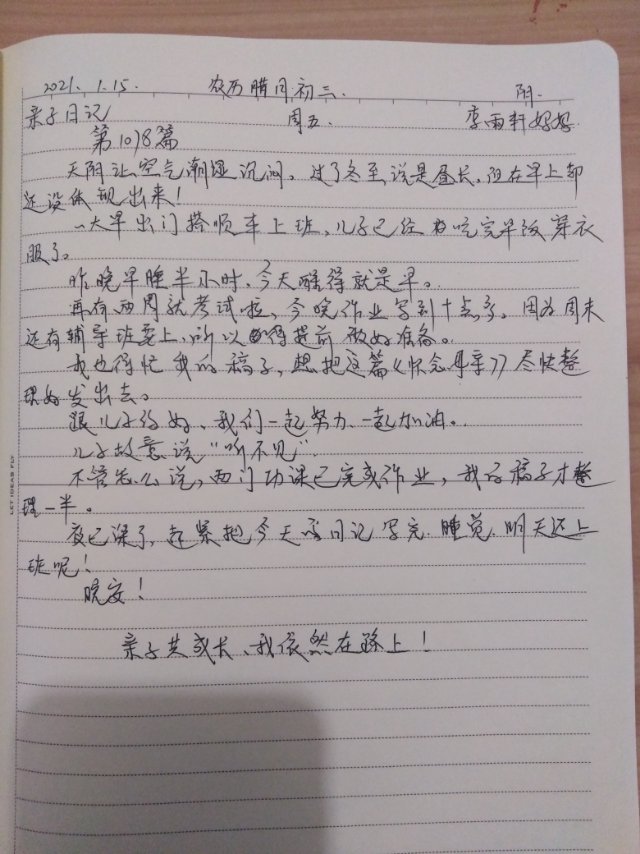 2021. 1.15. 农历腊月初三. 阴.
亲子日记 周五. 李雨轩妈妈
第1018篇
天阴让空气潮湿沉闷。过了冬至说是昼长,但在早上却
还没体现出来!
一大早出门搭顺车上班,儿子已经吃完早饭穿衣
服了。
昨晚早睡半小时,今天醒得就是早。
再有两周就考试啦,今晚作业写到十点多。因为周末
还有辅导班要上,所以得提前做好准备。
我也得忙我的稿子,想把这篇《怀念母亲》尽快整
理好发出去。
跟儿子约好,我们一起努力、一起加油。
儿子故意说"听不见".
不管怎么说,两门功课已完成作业,我的稿子才整
理一半。
夜已深了,赶紧把今天的日记写完.睡觉.明天还上
班呢!
晚安!
亲子共成长、我依然在路上!
LET IDEAS FLY